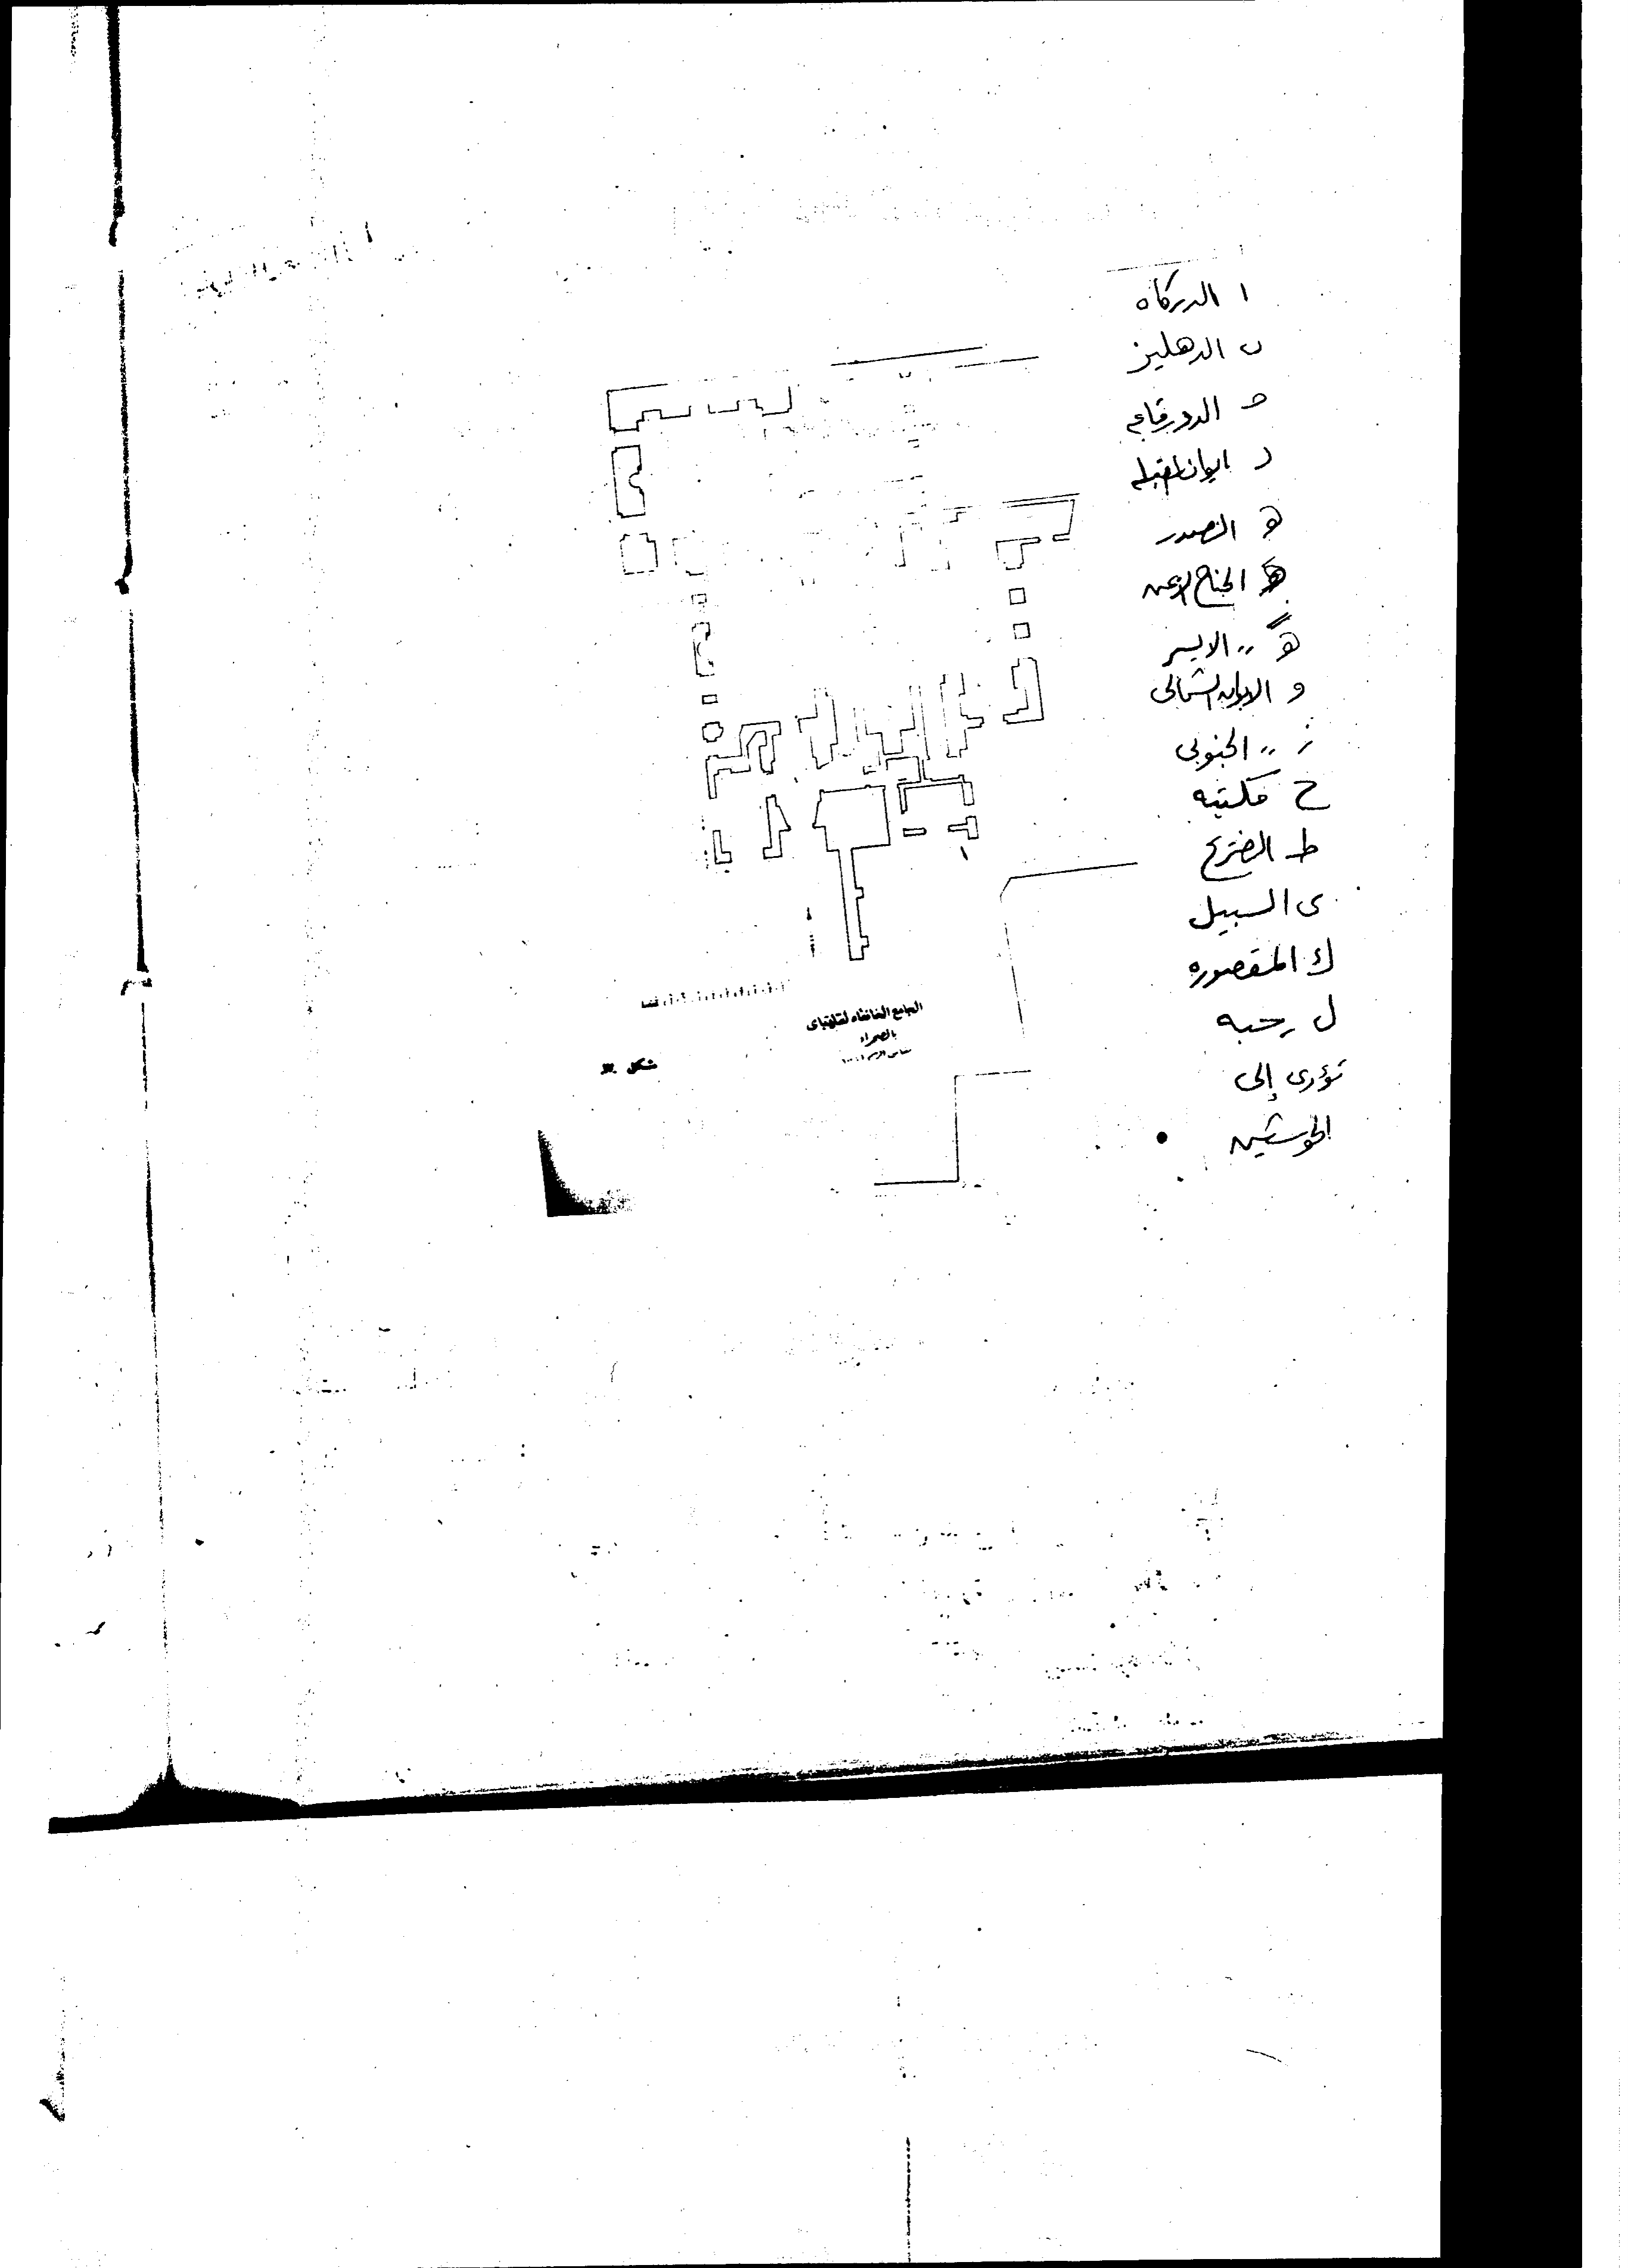 ا الدركاه
ب الدهليز
ح الدور قاعه
د ايوان القبله
ه الصدر
هَ الجناح الايمن
ه〃 〃 الايسر
و الايوان الشمالى
ز 〃 الجنوبى
ح مكتبه
ط الضريح
ى السبيل
ك المقصوره
ل رحبه
تؤدى إلى
الحوشين
الجامع الخانقاه لقايتباى
بالصحراء
شكل